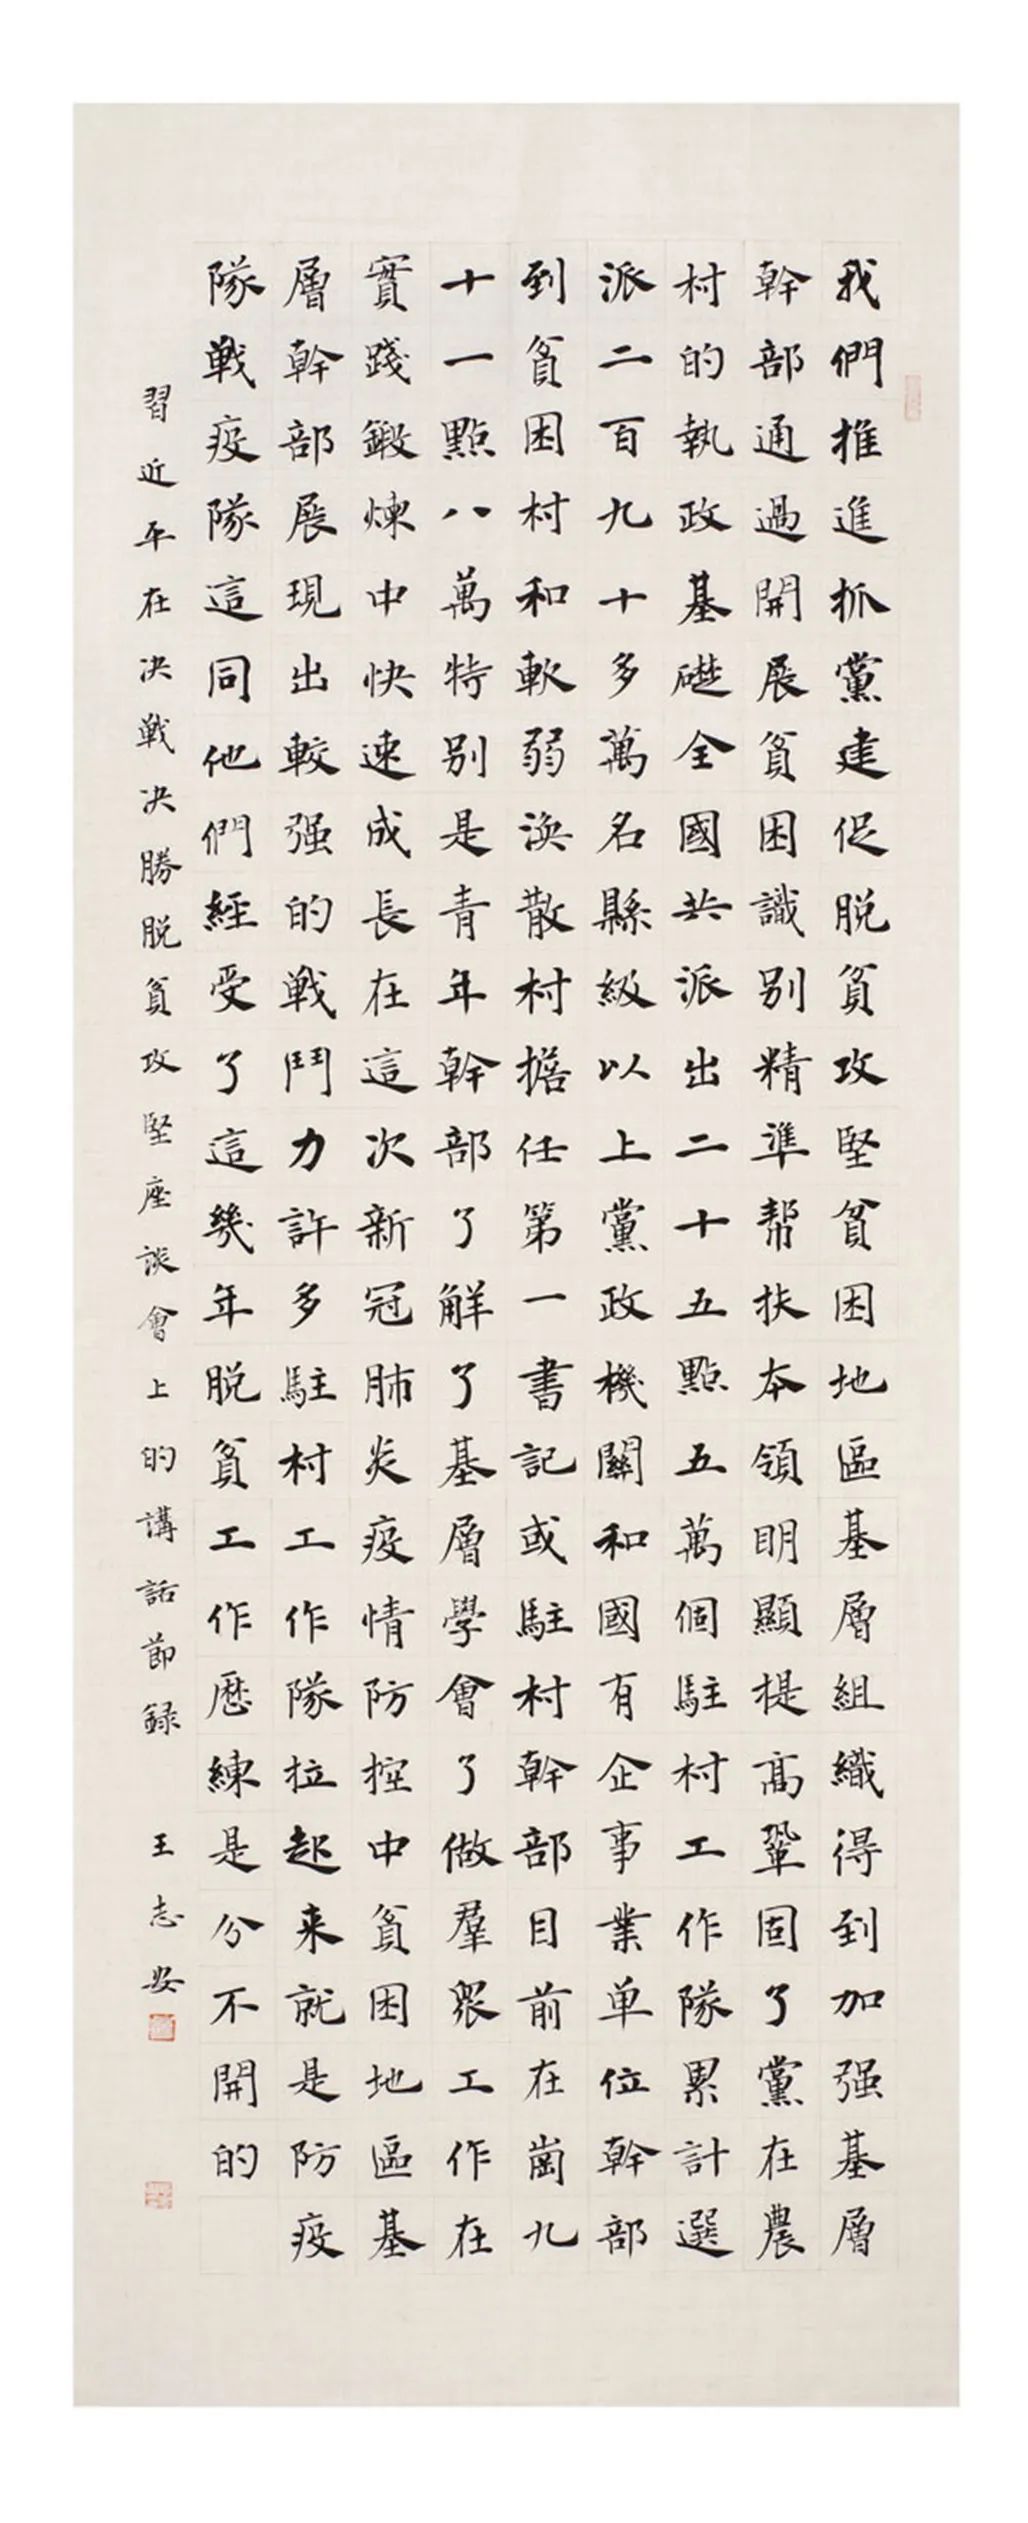 我們推進抓黨建促脱貧攻堅貧困地區基層組織得到加强基層
幹部通過開展貧困識别精準帮扶本領明顯提高鞏固了黨在農
村的執政基礎全國共派出二十五點五萬個駐村工作隊累計選
派二百九十多萬名縣級以上黨政機關和國有企事業单位幹部
到貧困村和軟弱渙散村擔任第一書記或駐村幹部目前在崗九
十一點八萬特别是青年幹部了解了基層學會了做羣衆工作在
實踐鍛煉中快速成長在這次新冠肺炎疫情防控中貧困地區基
層幹部展現出較强的戰鬥力許多駐村工作隊拉起来就是防疫
隊戰疫隊這同他們經受了這幾年脱貧工作歷練是分不開的
習近平在决戰决勝脱貧攻堅座談會上的講話節録 王志安